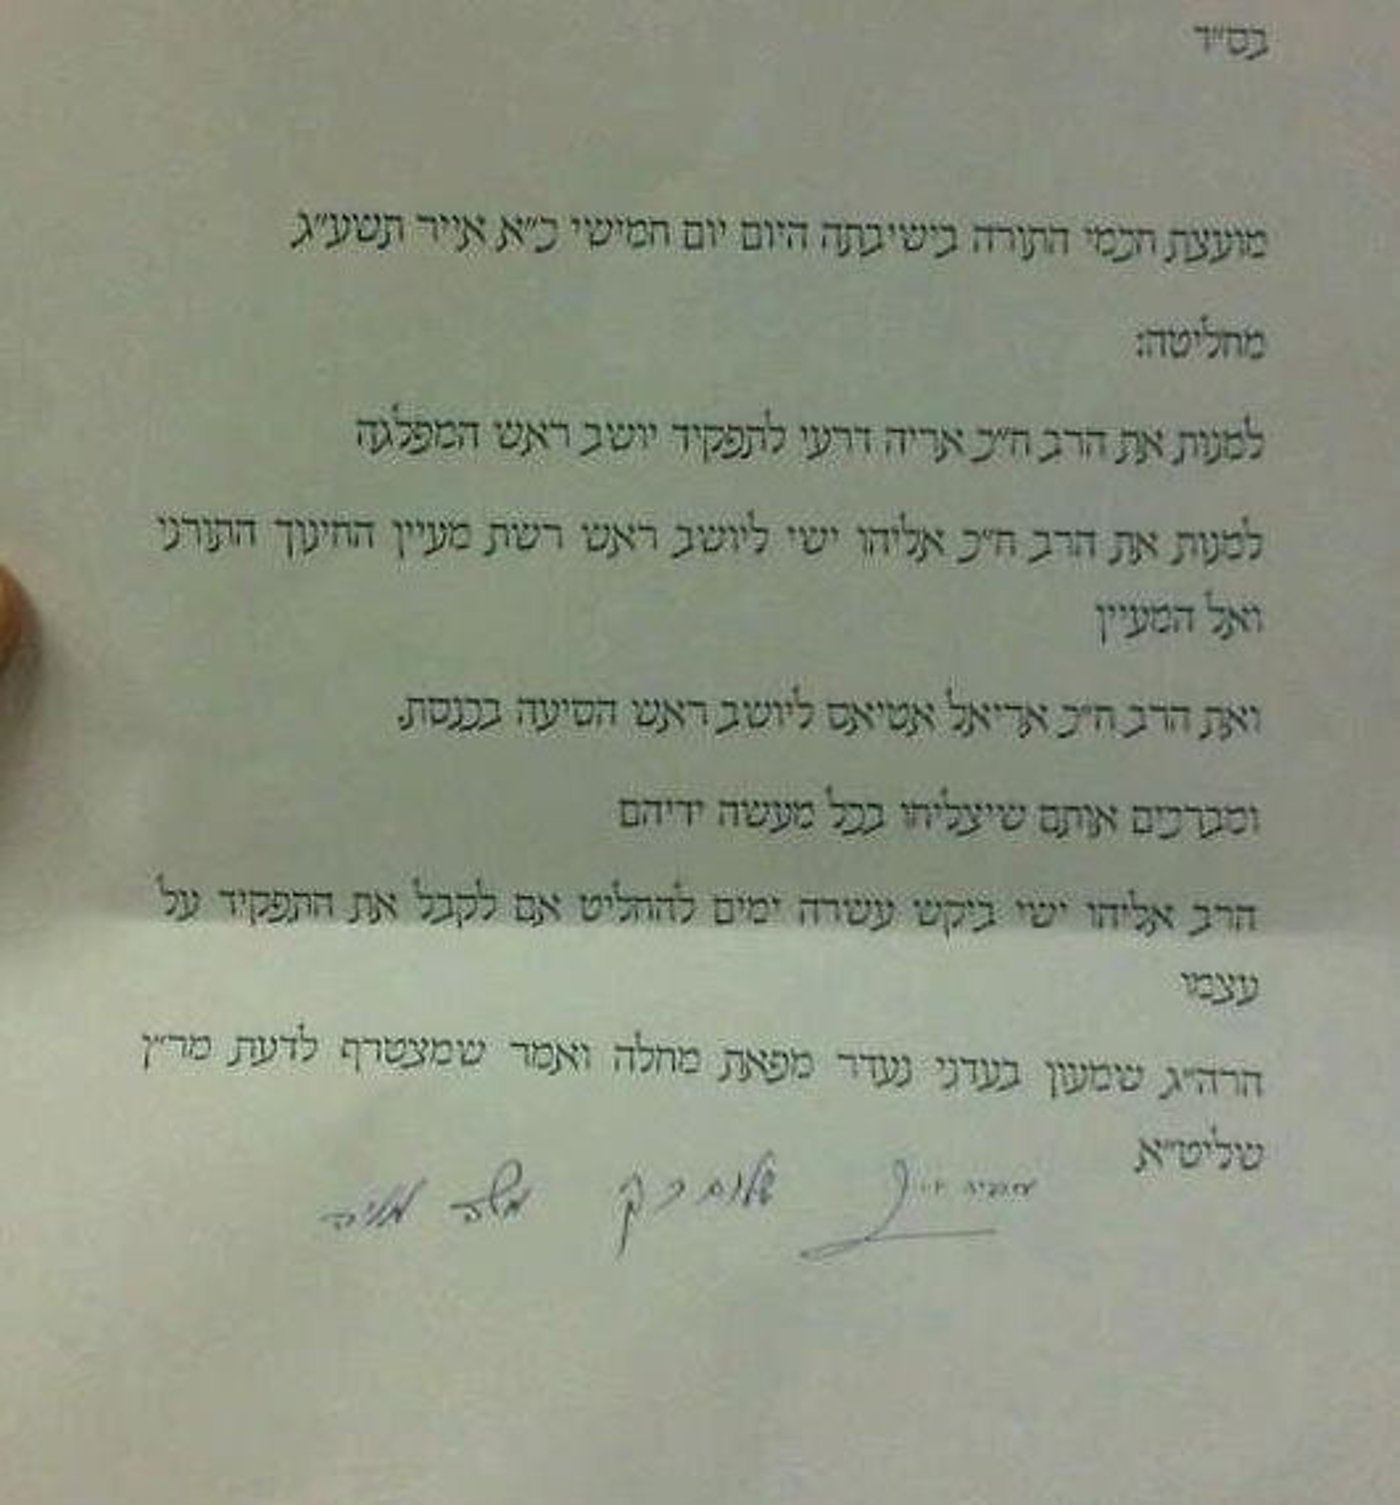 בס"ד
מועצת חכמי התורה בישיבתה היום יום חמישי כ"א אייר תשע"ג
מחליטה:
למנות את הרב ח"כ אריה דרעי לתפקיד יושב ראש המפלגה
למנות את הרב ח"כ אליהו ישי ליושב ראש רשת מעיין החינוך התורני
ואל המעיין
ואת הרב ח"כ אריאל אטיאס ליושב ראש הסיעה בכנסת.
ומברכים אותם שיצליחו בכל מעשה ידיהם
הרב אליהו ישי ביקש עשרה ימים להחליט אם לקבל את התפקיד על
עצמו
הרה"ג שמעון בעדני נעדר מפאת מחלה ואמר שמצטרף לדעת מר"ן
שליט"א
עובדיה יוסף שלום כהן משה מאיה